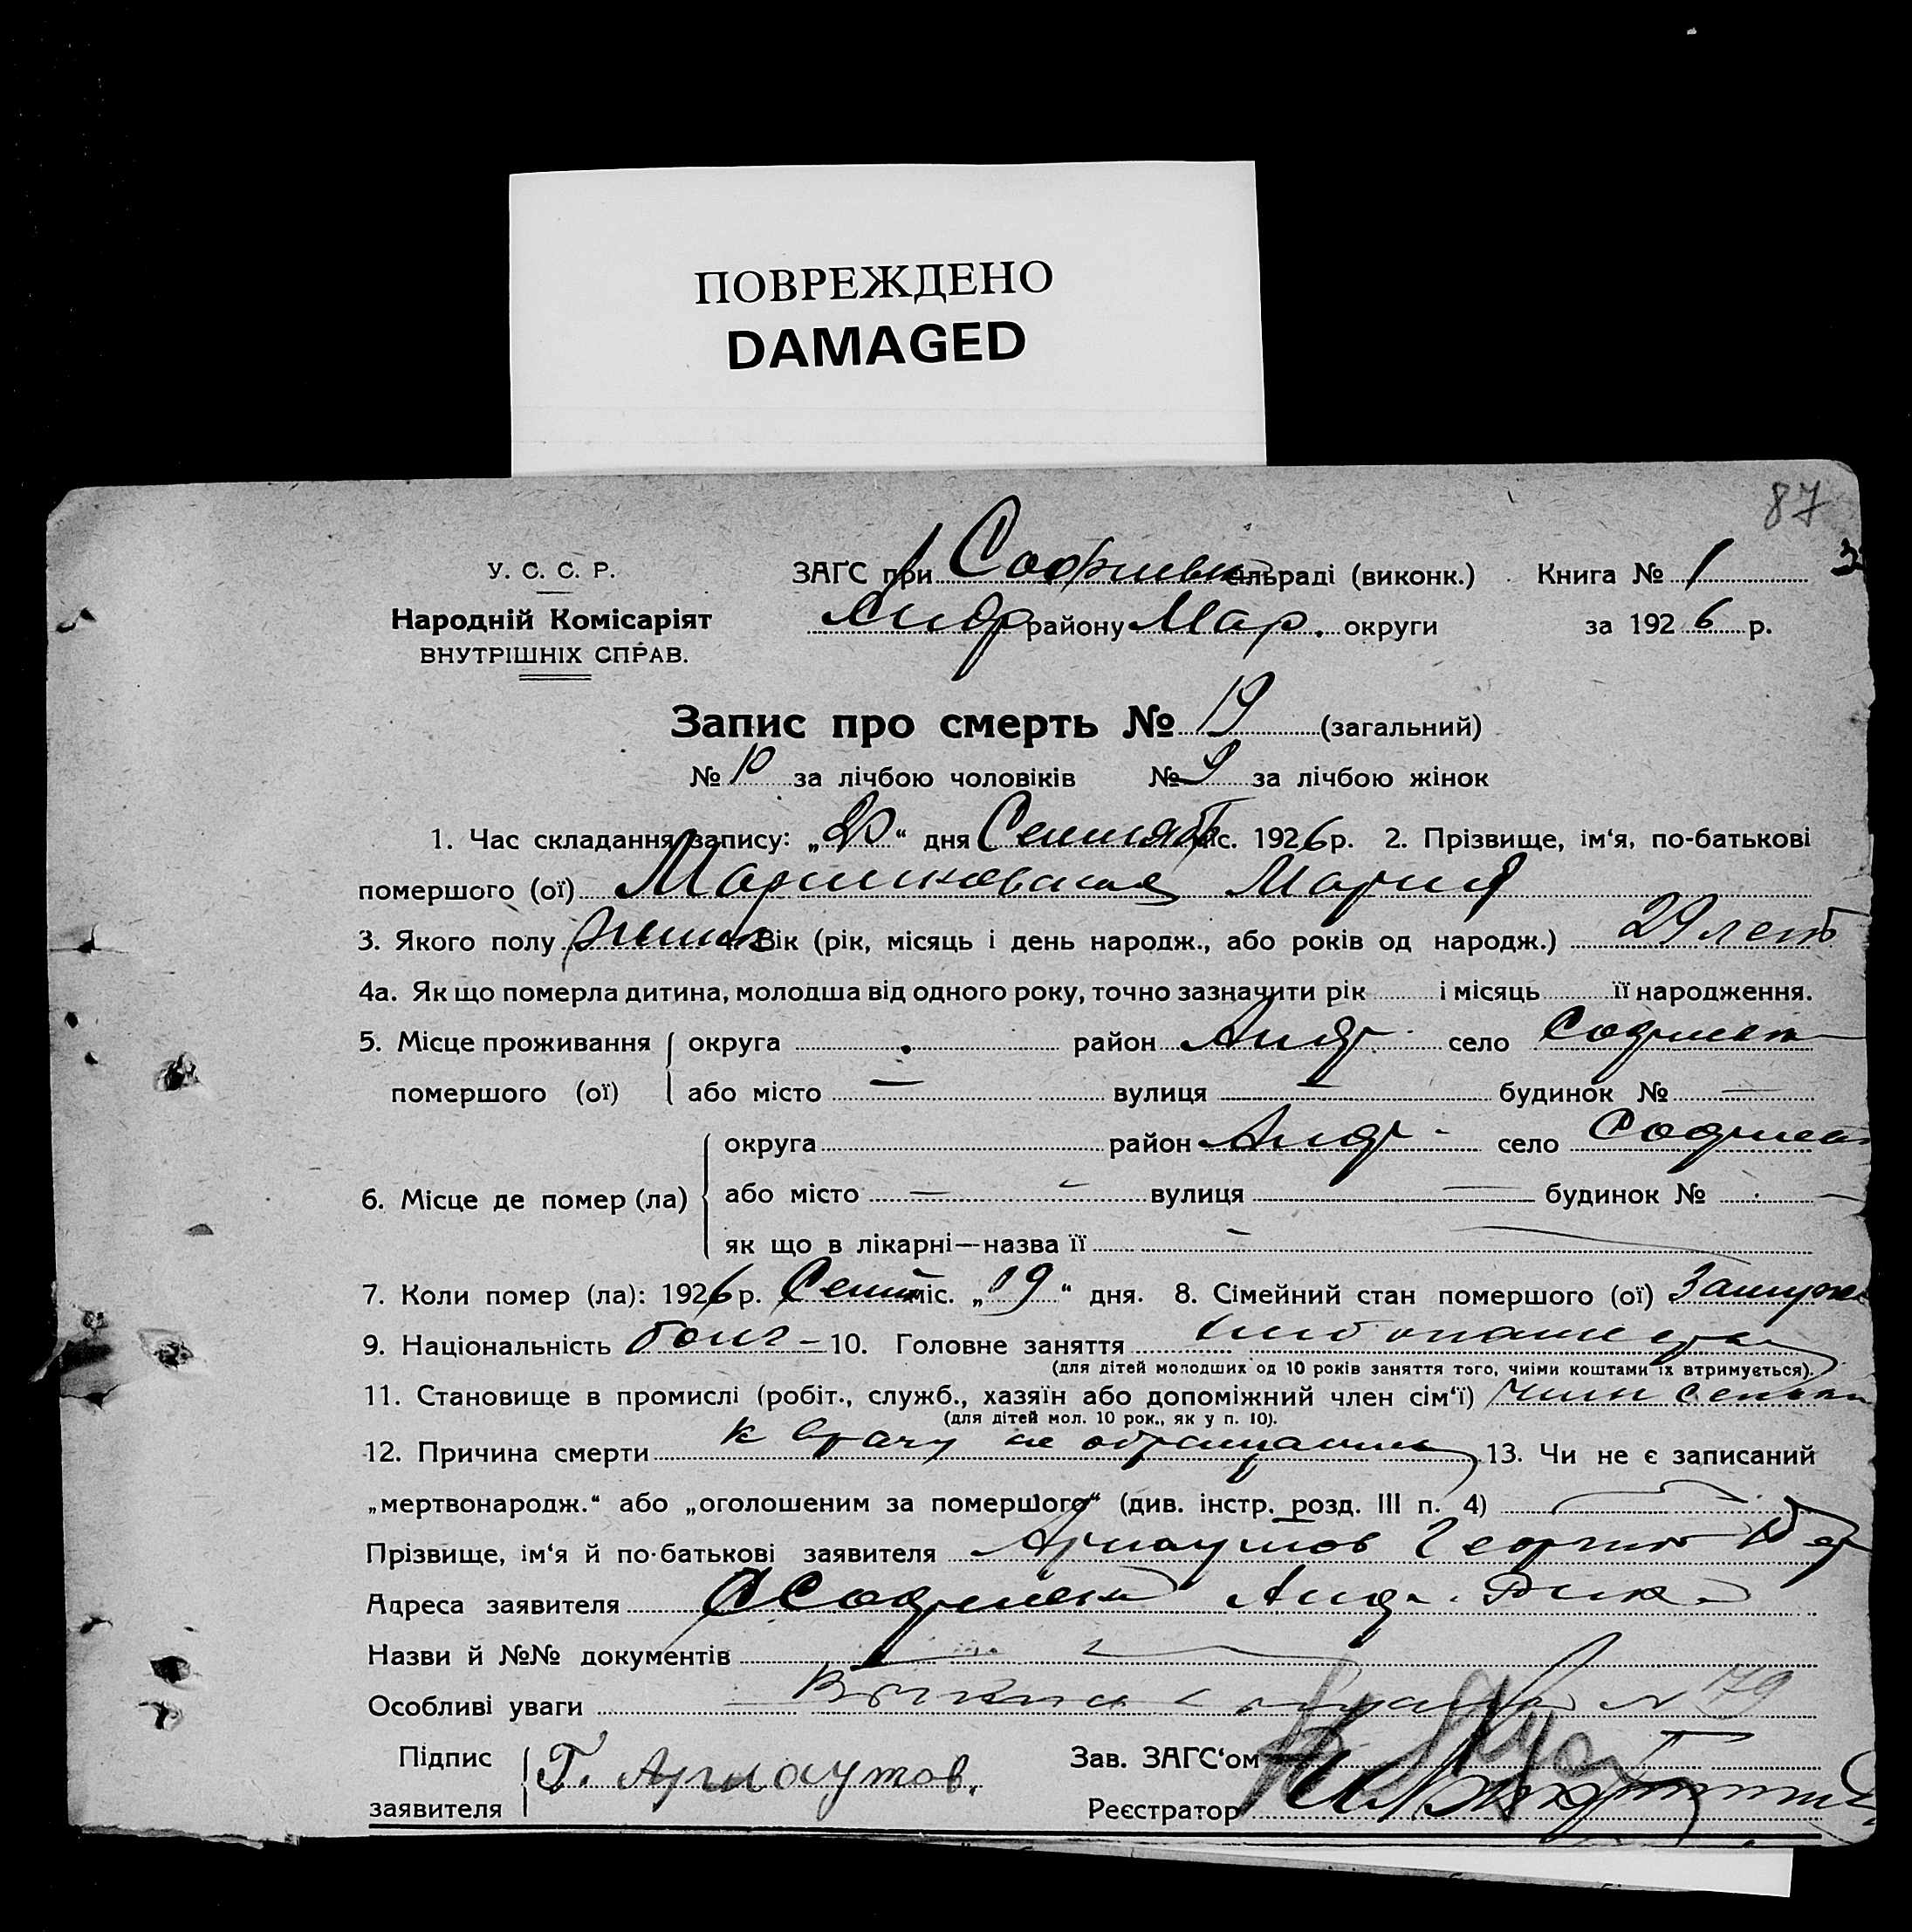 ПОВРЕЖДЕНО
DAMAGED
87
У. С. С. Р.
Народній Комісаріят
ВНУТРІШНІХ СПРАВ.
ЗАГС при Софиевк сільраді (виконк.) Книга № 1
Андр району Мар. округи за 1926 р.
Запис про смерть № 19 (загальний)
№ 10 за лічбою чоловіків № 9 за лічбою жінок
1. Час складання запису: „20“ дня Сентяб міс. 1926 р. 2. Прізвище, ім‘я, по-батькові
помершого (ої) Мария
3. Якого полу женск 4. Вік (рік, місяць і день народж., або років од народж.) 29 лет
4а. Як що померла дитина, молодша від одного року, точно зазначити рік і місяць її народження.
5. Місце проживання помершого (ої) округа район Андр. село Софиевк
або місто — вулиця — будинок № —
6. Місце де помер (ла) округа район Андр - село Софиев
або місто — вулиця — будинок № —
як що в лікарні—назва її —
7. Коли помер (ла): 1926 р. Сент міс. „19“ дня. 8. Сімейний стан помершого (ої) Замуж
9. Національність болг - 10. Головне заняття хлебопашество
(для дітей молодших од 10 років заняття того, чиїми коштами їх втримується).
11. Становище в промислі (робіт., служб., хазяїн або допоміжний член сім‘ї) член семьи
(для дітей мол. 10 рок., як у п. 10).
12. Причина смерти к врачу не обращались 13. Чи не є записаний
„мертвонародж.“ або „оголошеним за помершого“ (див. інстр. розд. III п. 4) —
Прізвище, ім‘я й по-батькові заявителя Арнаутов Георгий
Адреса заявителя Софиевка Андр. Р-на
Назви й №№ документів
Особливі уваги № 79
Підпис заявителя Г. Арнаутов.
Зав. ЗАГС‘ом
Реєстратор